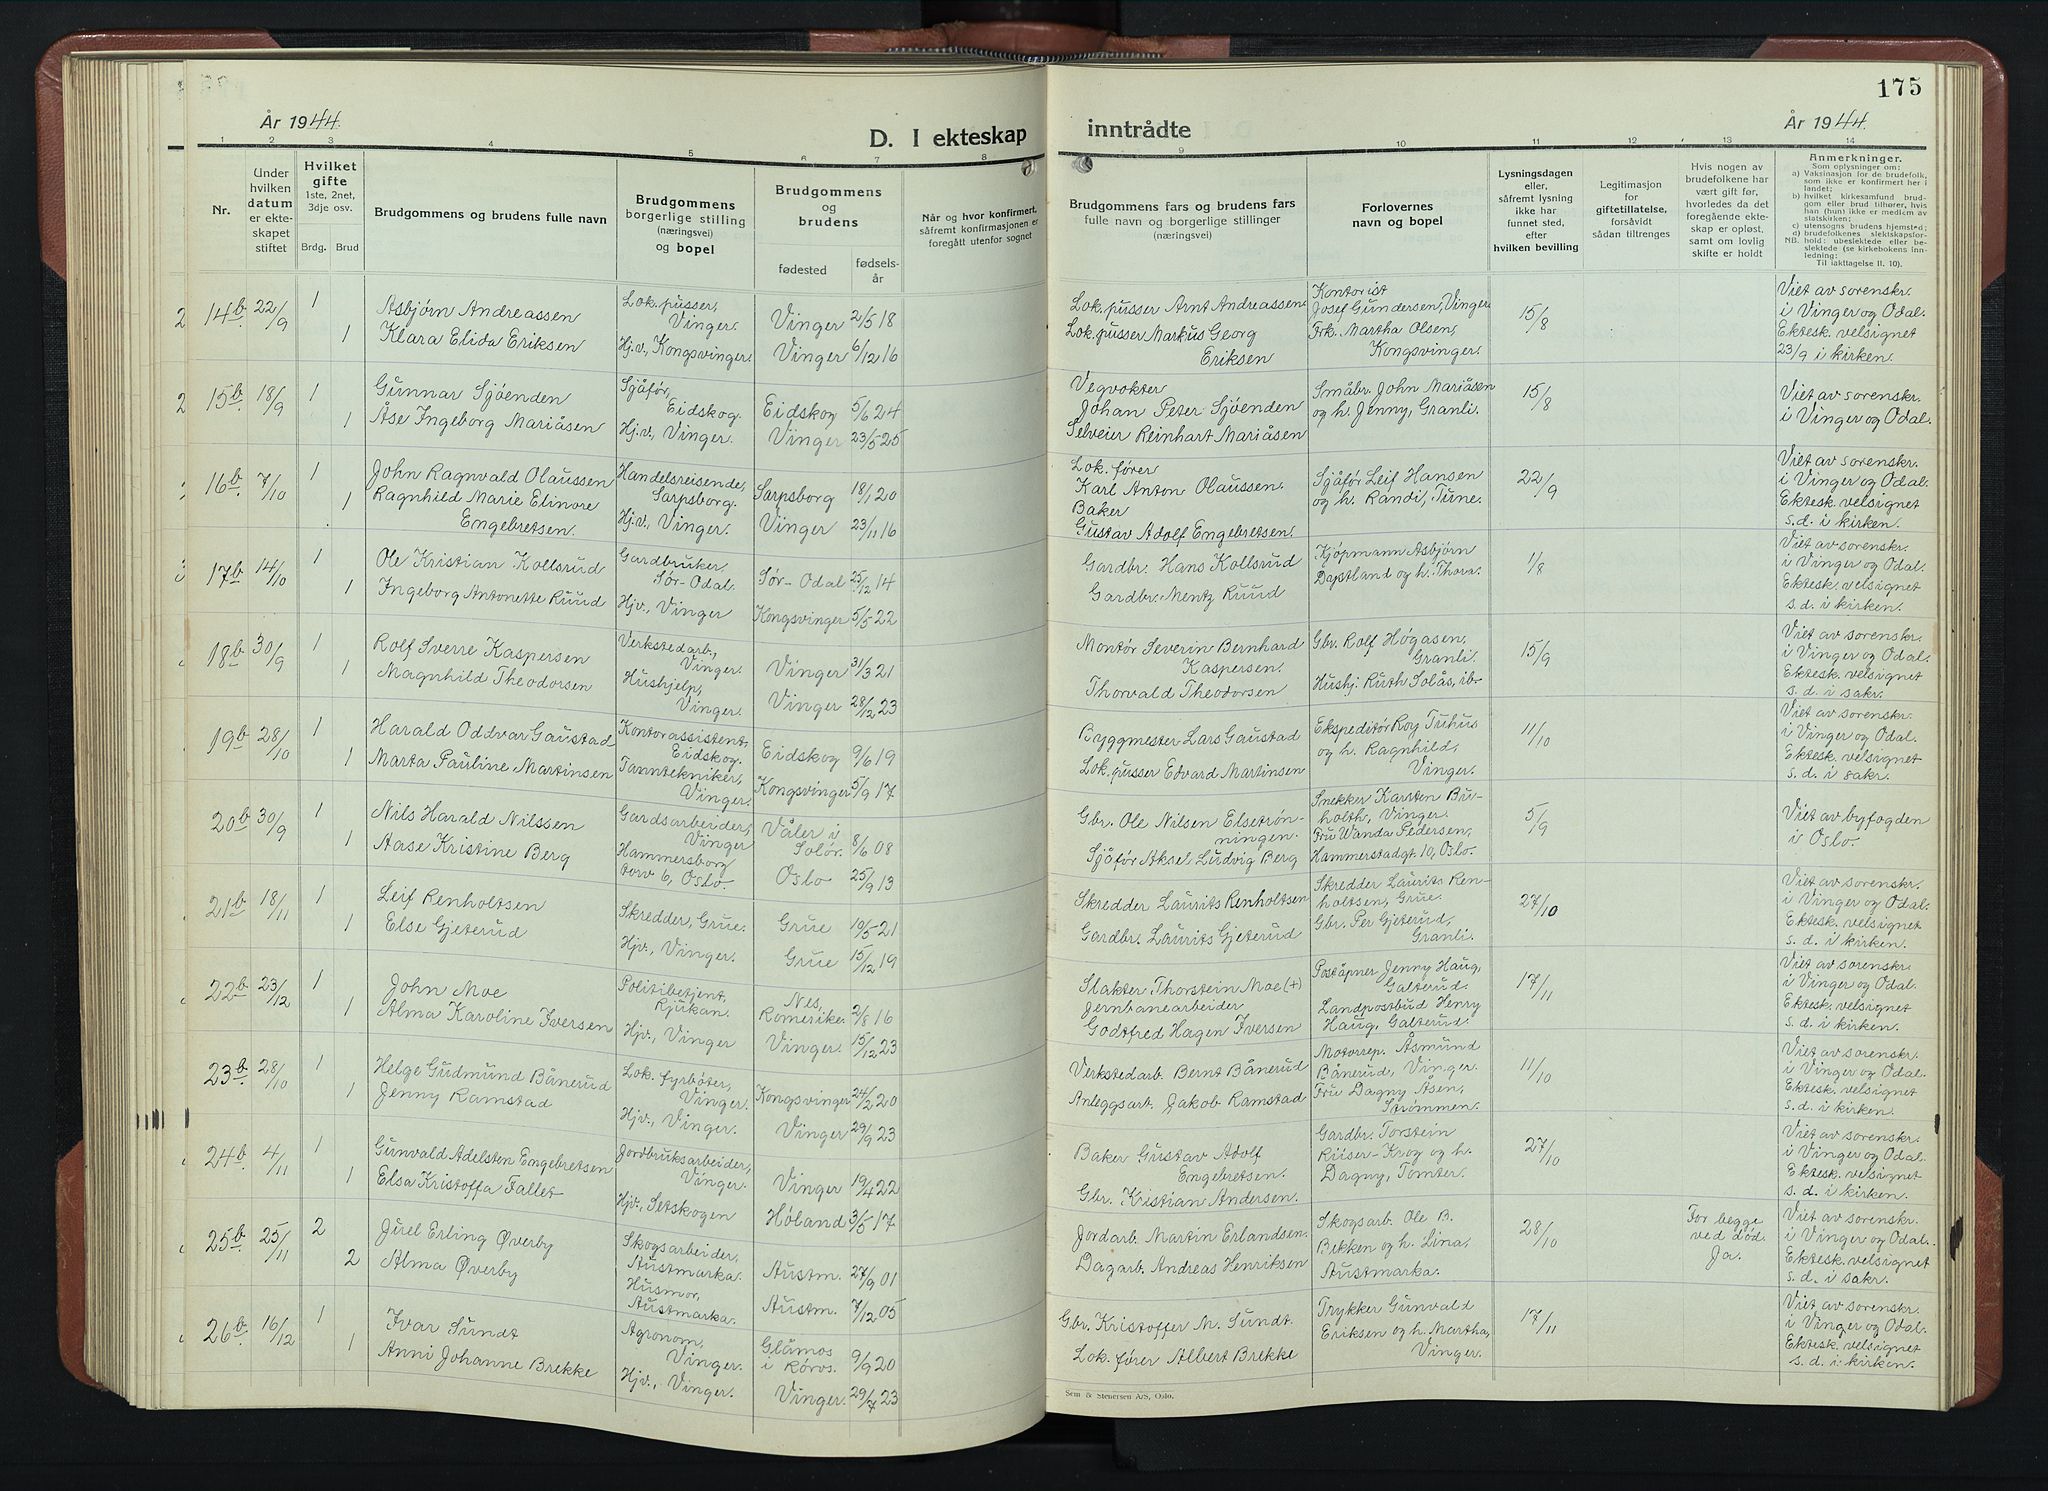 175
År 1944.
D. I ekteskap inntrådte
År 1944.
1 2 3 4 5 6 7 8 9 10 11 12 13 14
Nr.
Under hvilken datum er ekteskapet stiftet
Hvilket gifte
1ste, 2net, 3dje osv.
Brdg. Brud
Brudgommens og brudens fulle navn
Brudgommens borgerlige stilling (næringsvei) og bopel
Brudgommens og brudens
fødested
fødselsår
Når og hvor konfirmert, såfremt konfirmasjonen er foregått utenfor sognet
Brudgommens fars og brudens fars fulle navn og borgerlige stillinger (næringsvei)
Forlovernes navn og bopel
Lysningsdagen eller, såfremt lysning ikke har funnet sted, efter hvilken bevilling
Legitimasjon for giftetillatelse, forsåvidt sådan tiltrenges
Hvis nogen av brudefolkene har vært gift før, hvorledes da det foregående ekteskap er opløst, samt om lovlig skifte er holdt
Anmerkninger.
Som oplysninger om:
a) Vaksinasjon for de brudefolk, som ikke er konfirmert her i landet;
b) hvilket kirkesamfund brudgom eller brud tilhører, hvis han (hun) ikke er medlem av statskirken;
c) utensogns brudens hjemsted;
d) brudefolkenes slektskapsforhold: ubeslektede eller beslektede (se kirkebokens innledning:
NB. Til iakttagelse II. 10).
14b 22/9 1 Asbjørn Andreassen Lok.pusser, Vinger. Vinger 2/5 18 Lok.pusser Arnt Andreassen Kontorist Josef Gundersen, Vinger 15/8 Viet av sorenskr. i Vinger og Odal.
1 Klara Elida Eriksen Hj.v., Kongsvinger. Vinger 6/12 16 Lok.pusser Markus Georg Eriksen Frk. Martha Olsen, Kongsvinger. Ektesk. velsignet 23/9 i kirken.
15b 18/9 1 Gunnar Sjøenden Sjåfør, Eidskog. Eidskog 5/6 24 Vegvokter Johan Peter Sjøenden Småbr. John Mariåsen og h. Jenny, Granli. 15/8 Viet av sorenskr. i Vinger og Odal.
1 Åse Ingeborg Mariåsen Hj.v., Vinger. Vinger 23/5 25 Selveier Reinhart Mariåsen
16b 7/10 1 John Ragnvald Olaussen Handelsreisende, Sarpsborg. Sarpsborg 18/1 20 Lok.fører Karl Anton Olaussen. Sjåfør Leif Hansen og h. Randi, Tune. 22/9 Viet av sorenskr. i Vinger og Odal.
1 Ragnhild Marie Elinore Engebretsen. Hj.v., Vinger. Vinger 23/11 16 Baker Gustav Adolf Engebretsen. Ektesk. velsignet s.d. i kirken.
17b 14/10 1 Ole Kristian Kollsrud Gardbruker Sør-Odal. Sør-Odal 25/12 14 Gardbr. Hans Kollsrud Kjøpmann Asbjørn Dapstland og h. Thora. 1/8 Viet av sorenskr. i Vinger og Odal.
1 Ingeborg Antonette Ruud Hjv., Vinger Kongsvinger 5/5 22 Gardbr. Mentz Ruud Ektesk. velsignet s.d. i kirken.
18b 30/9 1 Rolf Sverre Kaspersen Verkstedarb., Vinger. Vinger 31/3 21 Montør Severin Bernhard Kaspersen. Gbr. Rolf Høgåsen, Granli. 15/9 Viet av sorenskr. i Vinger og Odal.
1 Magnhild Theodorsen Hushjelp, Vinger. Vinger 28/12 23 Thorvald Theodorsen Hushj. Ruth Solås, ibr Ektesk. velsignet s.d. i sakr.
19b 28/10 1 Harald Oddvar Gaustad Kontorassistent, Eidskog. Eidskog 9/6 19 Byggmester Lars Gaustad Ekspeditør Roy Tuhus og h. Ragnhild, Vinger. 11/10 Viet av sorenskr. i Vinger og Odal.
1 Marta Pauline Martinsen Tanntekniker, Vinger. Kongsvinger 5/9 17 Lok.pusser Edvard Martinsen Ektesk. velsignet s.d. i sakr.
20b 30/9 1 Nils Harald Nilssen Gardsarbeider, Vinger Våler i Solør. 8/6 08 Gbr. Ole Nilsen Elsetrønningen. Snekker Karsten Buholth, Vinger. 5/9 Viet av byfogden i Oslo.
1 Aase Kristine Berg Hammersborg torv 6, Oslo. Oslo 25/9 13 Sjåfør Aksel Ludvig Berg Fru Wanda Pedersen, Hammerstadgt. 10, Oslo.
21b 18/11 1 Leif Renholtsen Skredder, Grue. Grue 19/5 21 Skredder Laurits Renholtsen Skredder Laurits Renholtsen, Grue. 27/10 Viet av sorenskr. i Vinger og Odal.
1 Else Gjeterud Hjv., Vinger. Grue 15/12 19 Gardbr. Laurits Gjeterud Gbr. Per Gjeterud, Granli. Ektesk. velsignet s.d. i kirken.
22b 23/12 1 John Moe Politibetjent, Rjukan. Nes, Romerike. 2/8 16 Slakter Thorstein Moe (+) Poståpner Jenny Haug, Galterud. 17/11 Viet av sorenskr. i Vinger og Odal.
1 Alma Karoline Iversen Hjv., Vinger Vinger. 15/12 23 Jernbanearbeider Godtfred Hagen Iversen Landpostbud Henry Haug, Galterud. Ektesk. velsignet s.d. i kirken.
23b 28/10 1 Helge Gudmund Bånerud Lok.fyrbøter, Vinger. Kongsvinger 24/2 20 Verkstedarb. Bernt Bånerud Motorrep. Åsmund Bånerud, Vinger. 11/10 Viet av sorenskr. i Vinger og Odal.
1 Jenny Ramstad Hjv., Vinger. Vinger 29/9 23 Anleggsarb. Jakob Ramstad Fru Dagny Åsen, Strømmen. Ektesk. velsignet s.d. i kirken.
24b 4/11 1 Gunvald Adelsten Engebretsen Jordbruksarbeider, Vinger. Vinger 19/4 22 Baker Gustav Adolf Engebretsen. Gardbr. Torstein Riiser-Krog og h. Dagny, Tomter. 27/10 Viet av sorenskr. i Vinger og Odal.
1 Elsa Kristoffa Fallet Hjv., Setskogen Høland 3/5 17 Gbr. Kristian Andersen. Ektesk. velsignet s.d. i kirken.
25b 25/11 2 Juel Erling Øverby Skogsarbeider, Austmarka. Austm. 27/9 01 Jordarb. Martin Erlandsen. Skogsarb. Ole B. Bekken og h. Lina, Austmarka. 28/10 For begge ved død. Ja. Viet av sorenskr. i Vinger og Odal.
2 Alma Øverby Husmor, Austmarka. Austm. 7/12 05 Dagarb. Andreas Henriksen Ektesk. velsignet s.d. i sakr.
26b 16/12 1 Ivar Sundt Agronom, Vinger. Glåmos i Røros. 9/9 20 Gbr. Kristoffer M. Sundt. Trykker Gunvald Eriksen og h. Martha, Vinger. 17/11 Viet av sorenskr. i Vinger og Odal.
1 Anni Johanne Brekke Hjv., Vinger. Vinger. 29/7 23 Lok.fører Albert Brekke Ektesk. velsignet s.d. i kirken.
Sem & Stenersen A/S, Oslo.